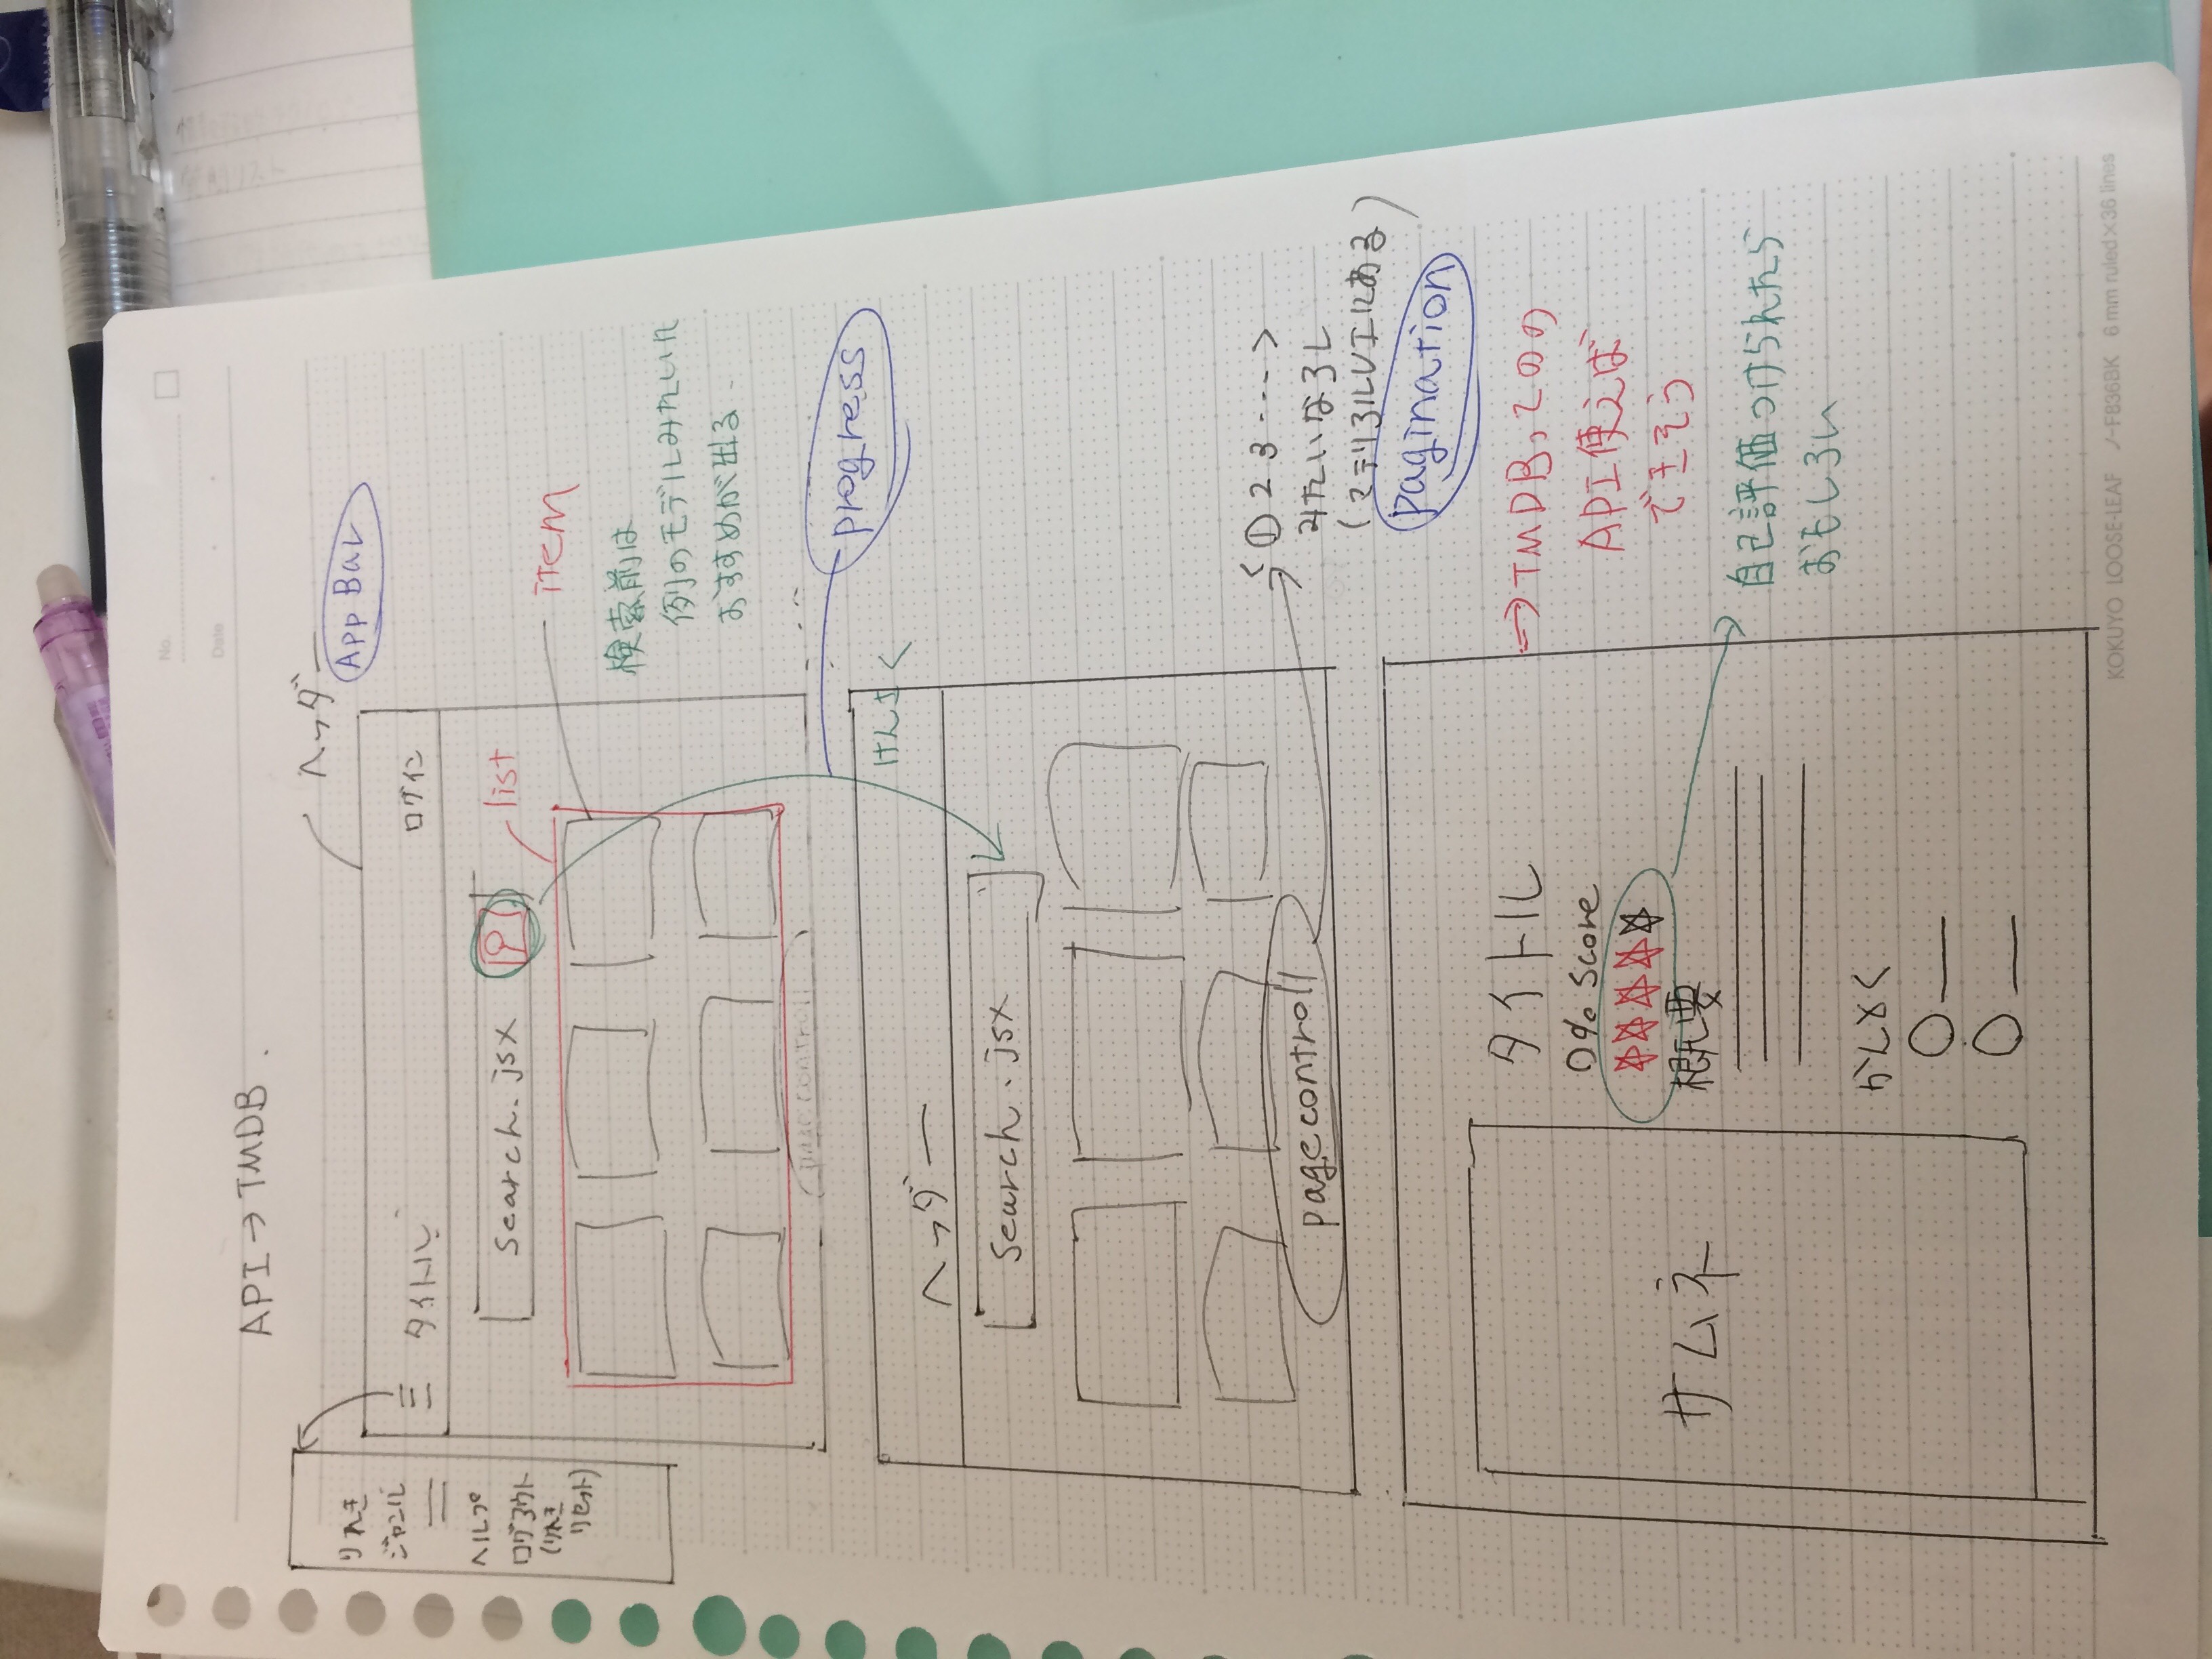 No.
Date
API→TMDB.
ヘッダー
App Bar
りれき
ジャンル
ヘルプ
ログアウト
(りれき
リセット)
タイトル
ログイン
Search.jsx
list
item
検索前は
例のモデルみたいな
おすすめが出る
pagecontroll
progress
けんさく
ヘッダー
Search.jsx
pagecontroll
< ① 2 3 ・・・・ >
みたいなろし
(マテリアルUIにある)
pagination
サムネ
タイトル
0% Score
☆☆☆☆☆
概要
かんとく
→TMDBってのの
API使えば
できそう
自己評価つけられたら
おもしろい
KOKUYO LOOSE-LEAF ノ-F836BK 6 mm ruled×36 lines